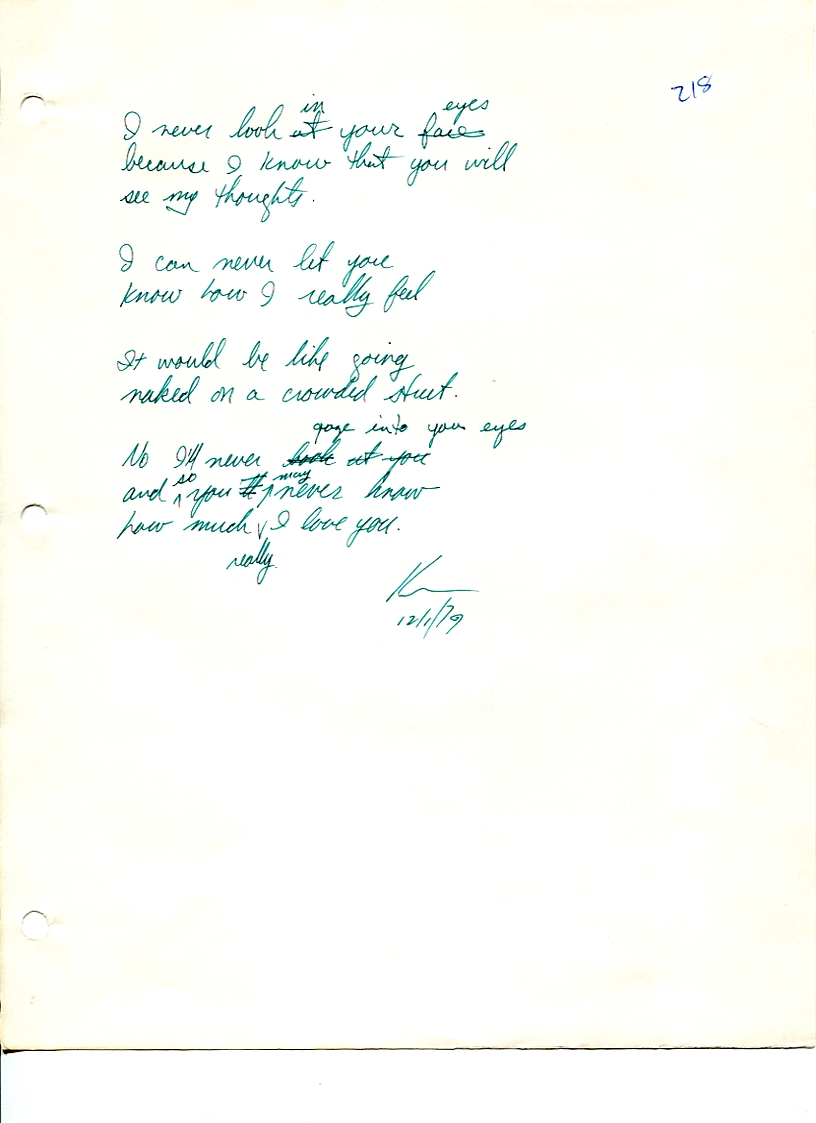 218
in eyes
I never look at your face
because I know that you will
see my thoughts.
I can never let you
know how I really feel
It would be like going
naked on a crowded street.
gaze into your eyes
No I'll never look at you
so may
and you never know
how much I love you.
really
12/1/79